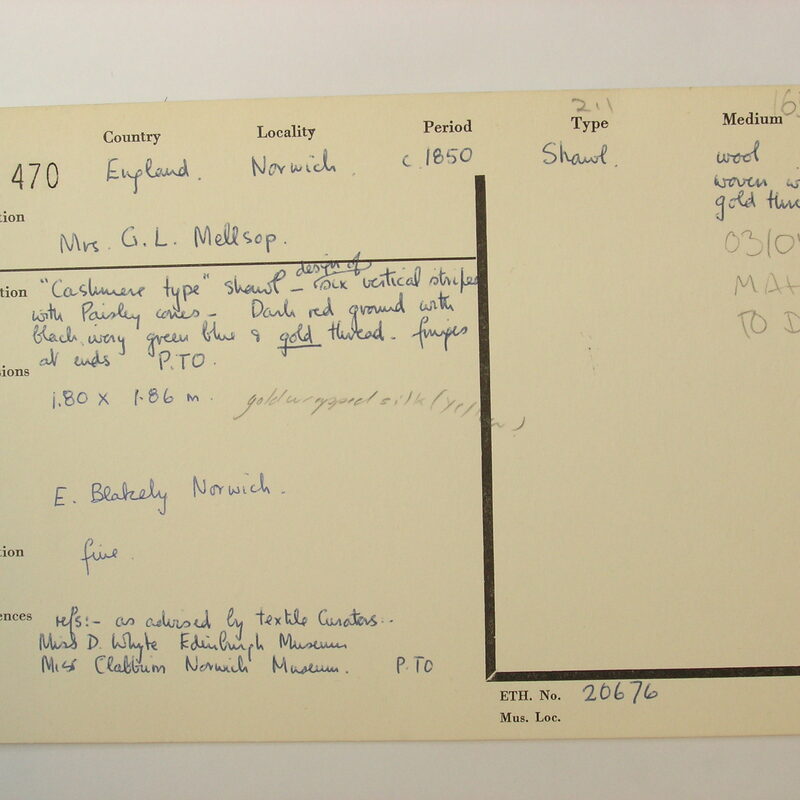 211
Country Locality Period Type Medium
470 England. Norwich. c.1850 Shawl. wool
woven
gold
tion
Mrs. G. L. Mellsop.
TO D
tion "Cashmere type" shawl – design of six vertical stripes
with Paisley cones – Dark red ground with
black, ivory green blue & gold thread. fringes
at ends P.TO.
sions
1.80 x 1.86 m. gold wrapped silk (yellow)
E. Blakely Norwich.
tion fine.
ences refs:- as advised by textile Curators..
Miss D. Whyte Edinburgh Museum
Miss Clabburn Norwich Museum. P.TO
ETH. No. 20676
Mus. Loc.